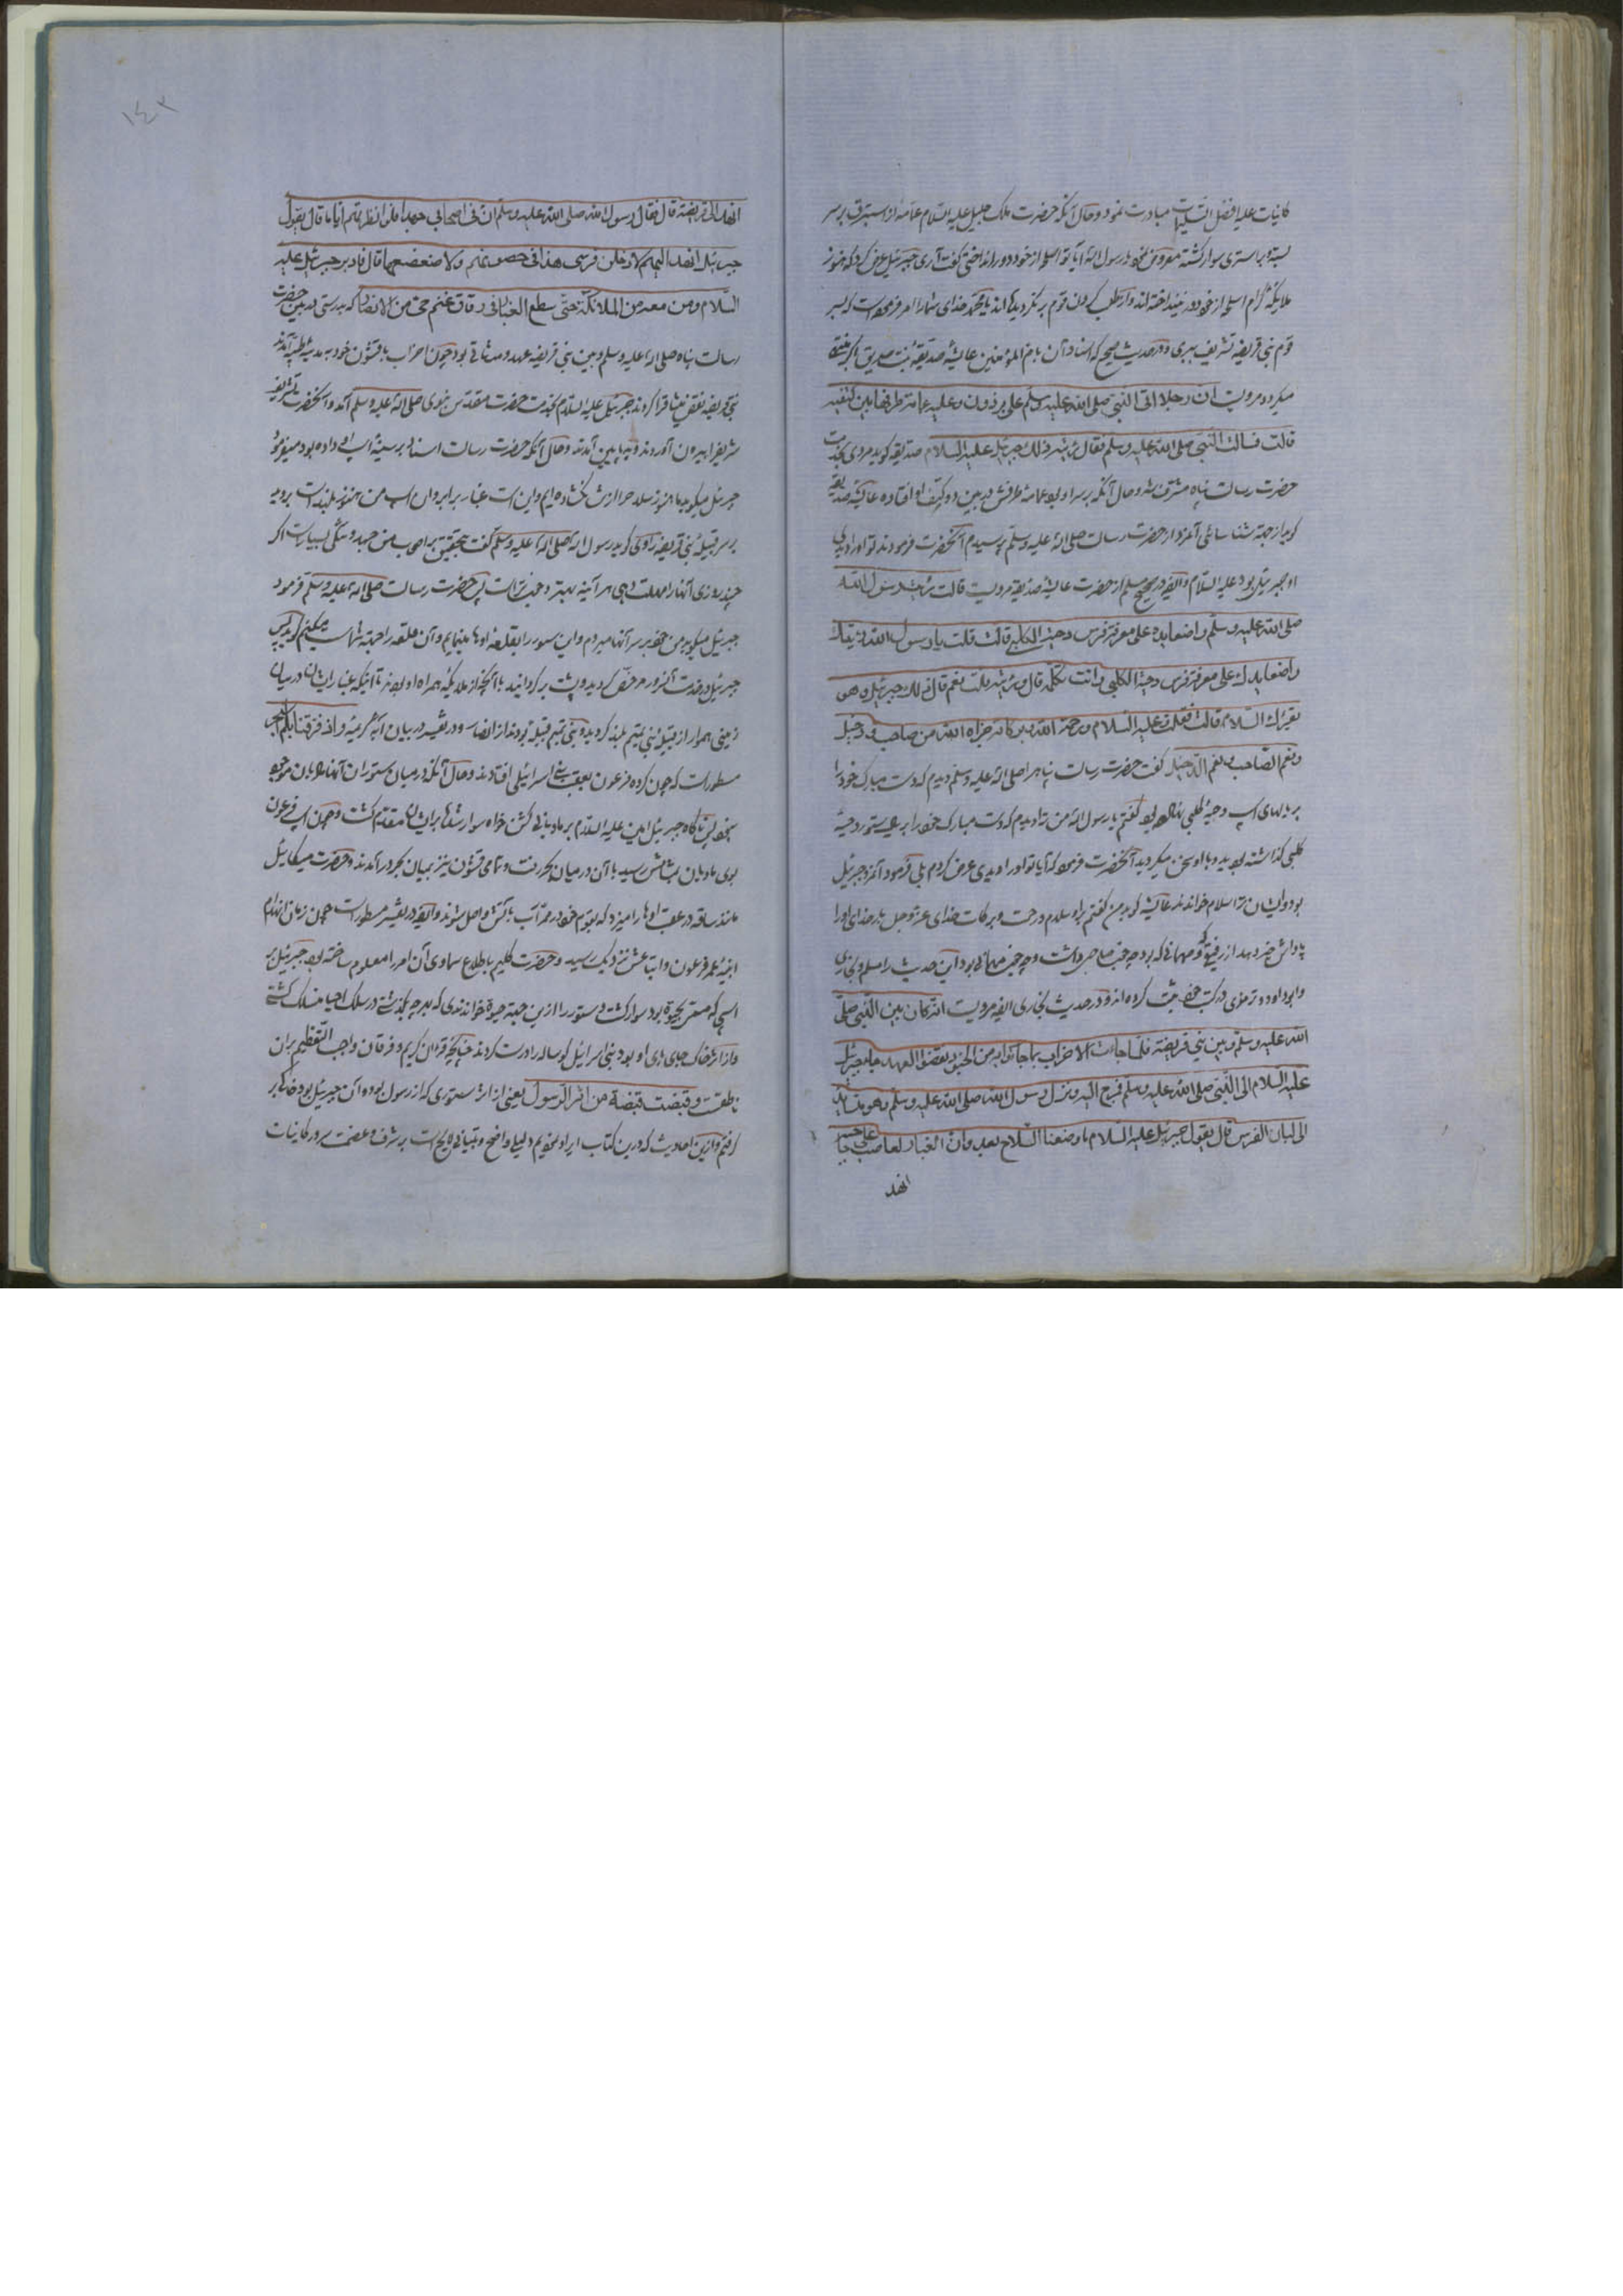 کاینات علیه افضل التسلیمات مبادرت نمود و حال آنکه حضرت ملک جلیل علیه السلام عمامه از استبرق بر سر
بسته و بر استری سوار گشته معروض نمود یا رسول الله آیا تو اسلحه از خود دور انداختی گفت آری جبرئیل عرض کرد که هنوز
ملایکه کرام اسلحه از خود دور نینداخته‌اند و از طلب قوم بر نگردیده‌اند یا محمد خدای شما را امر فرموده است که بسر
قوم بنی قریضه تشریف ببری و در حدیث صحیح که اسناد آن بام المؤمنین عایشه صدیقه بنت صدیق اکبر
میگردد مرویست ان رجلا اتی النبی صلی الله علیه وسلم علی برذون و علیه عمامة طرفها بین کتفیه
قالت فسالت النبی صلی الله علیه وسلم فقال رئیته ذلک جبرئیل علیه السلام صدیقه گوید مردی بخدمت
حضرت رسالت پناه مشرف شد و حال آنکه بر سر او بود عمامه طرفش در بین دو کتف او افتاده عایشه صدیقه
گوید از جهة شناسائی آنمرد از حضرت رسالت صلی الله علیه وسلم پرسیدم آنحضرت فرمودند تو او را دیدی
او جبرئیل بود علیه السلام و ایضا در صحیح مسلم از حضرت عایشه صدیقه مرویست قالت رئیت رسول الله
صلی الله علیه وسلم واضعا یده علی معرفة فرس دحیة الکلبی قالت قلت یا رسول الله رئیتک
واضعا یدک علی معرفة فرس دحیة الکلبی و انت تکلمه قال و رئیته قلت نعم قال ذلک جبرئیل و هو
یقرئک السلام قالت فقلت علیه السلام و رحمة الله و برکاته جزاه الله من صاحب و دخیل
و نعم الصاحب و نعم الدخیل گفت حضرت رسالت پناه را صلی الله علیه وسلم دیدم که دست مبارک خود را
بر یالهای اسپ دحیه کلبی نهاده بود گفتم یا رسول الله من ترا دیدم که دست مبارک خود را بر ستور دحیه
کلبی گذاشته بودید و با او سخن میکردید آنحضرت فرمود که آیا تو او را دیدی عرض کردم بلی فرمود آنمرد جبرئیل
بود و ایشان ترا سلام خواندند عایشه گوید من گفتم بر او سلام و رحمت و برکات خدای عز و جل باد خدای او را
پاداش خیر دهد از رفیق و مهمانی که بود چه خوب صاحبی داشت و چه خوب مهمانی بود این حدیث را مسلم و بخاری
و ابو داود و ترمذی در کتب خود ثبت کرده‌اند و در حدیث بخاری ایضا مرویست انه کان بین النبی صلی
الله علیه وسلم و بین بنی قریضة فلما جائت الاحزاب بما جاؤا به من الجنود نقضوا العهد جاء جبرئیل
علیه السلام الی النبی صلی الله علیه وسلم فخرج الیه و نزل رسول الله صلی الله علیه وسلم و هو متساند
الی لبان الفرس قال یقول جبرئیل علیه السلام ما وضعنا السلاح بعد و ان الغبار لعاصب علی
انهد
١٤٢
انهد الی قریضة قال فقال رسول الله صلی الله علیه وسلم ان فی اصحابی جهدا فلو انظرتهم ایاما قال یقول
جبرئیل انهد الیهم لادخلن فرسی هذا فی حصونهم و لاضعضعنها قال فادبر جبرئیل علیه
السلام و من معه من الملائکة حتی سطع الغبار فی زقاق غنم حی من الانصار که بدرستی در بین حضرت
رسالت پناه صلی الله علیه وسلم و بین بنی قریضه عهد و میثاقی بود چون احزاب با قشون خود به مدینه طیبه آمدند
بنی قریضه نقض میثاق را کردند جبرئیل علیه السلام بخدمت حضرت مقدس نبوی صلی الله علیه وسلم آمد و آنحضرت تشریف
شریف را بیرون آوردند و پایین آمدند و حال آنکه حضرت رسالت استناد بر سینه اسپ او داده بود میفرمود
جبرئیل میگوید ما هنوز سلاح را از تن نگشاده‌ایم و این است غبار برابروان اسپ من هنوز بلند است بروید
بر سر قبیله بنی قریضه راوی گوید رسول الله صلی الله علیه وسلم گفت بتحقیق بر اصحاب من جهد و تنگی بسیار است اگر
چند روزی آنها را مهلت دهی هر آینه بهتر و خوبتر است پس حضرت رسالت صلی الله علیه وسلم فرمود
جبرئیل میگوید من خود بر سر آنها میروم و این ستور را بقلعه اوها مینمایم و آن قلعه را جهة شما میکنم گوید پس
جبرئیل در خدمت آنسرور مرخص گردید و پشت برگردانید با آنچه از ملایکه همراه او بودند تا اینکه غبار ایشان در میان
زمینی هموار از قبیله بنی تیم بلند گردید و بنی تیم قبیله بودند از انصار و در تفسیر در بیان آیه کریمه و اذ فرقنا بکم البحر
مسطور است که چون گروه فرعون بعقب بنی اسرائیل افتادند و حال آنکه در میان ستوران آنها مادیان موجود
نبود پس ناگاه جبرئیل امین علیه السلام بر مادیانی گشن خواه سوار شد و بر ایشان مقدم گشت و چون اسپ فرعون
بوی مادیان بمشامش رسید با آن در میان بحر رفت و تمامی قشون نیز بمیان بحر در آمدند و حضرت میکائیل
مانند ساقه در عقب اوها را میزد که بقوم خود در ممر آب بآتش واصل شوند و ایضا در تفسیر مسطور است چون زمان انهدام
ابنیه عمر فرعون و اتباعش نزدیک رسید و حضرت کلیم باطلاع سماوی آن امر را معلوم ساخته بود جبرئیل بر
اسپی که مسمی بحیوة بود سوار گشت و ستور را ازین جهة حیوة خواندندی که بهر چه بگذشتی در سلک احیا منسلک گشتی
و از اثر خاک جای پای او بود بنی اسرائیل گوساله را درست کردند چنانچه قرآن کریم و فرقان واجب التعظیم بر آن
ناطقست و قبضت قبضة من اثر الرسول یعنی از اثر ستوری که از رسول بوده آن جبرئیل بود خاک بر
گرفتم و ازین احادیث که درین کتاب ایراد نمودیم دلیلی واضح و بیانی لایح است بر شرف و عظمت سرور کاینات